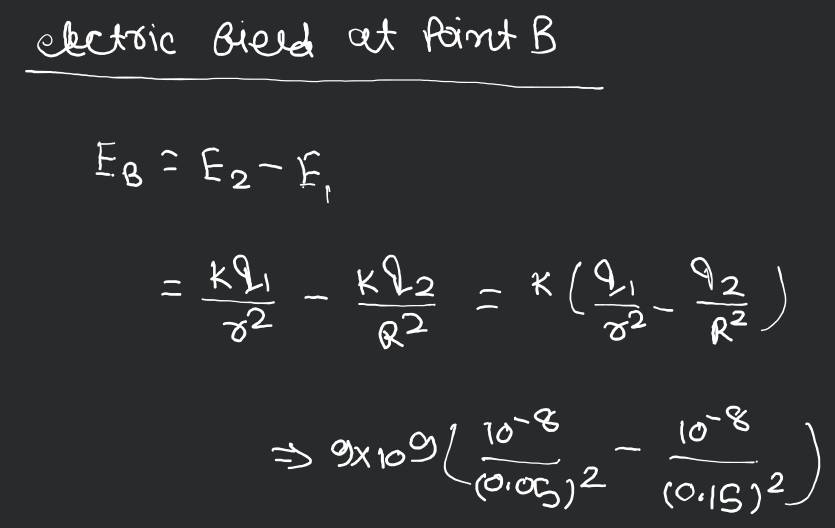 electric field at Point B
E_B = E_2 - E_1
= Kq_1/r^2 - Kq_2/R^2 = K(q_1/r^2 - q_2/R^2)
⇒ 9×10^9(10^-8/(0.05)^2 - 10^-8/(0.15)^2)